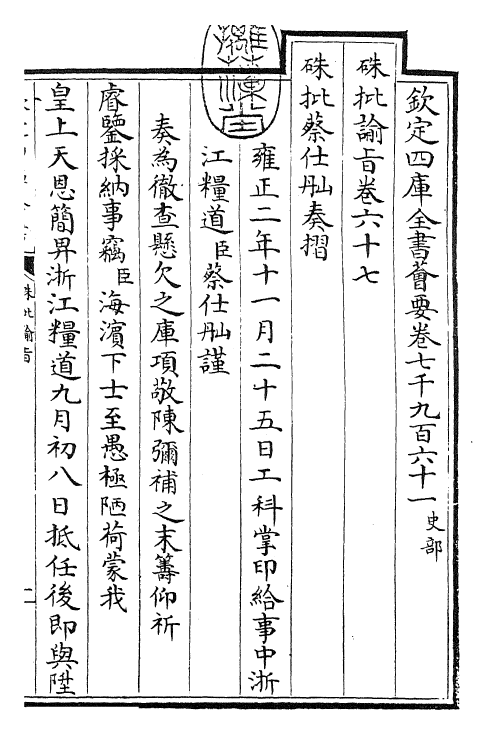 欽定四庫全書薈要卷七千九百六十一 史部
硃批諭旨卷六十七
硃批蔡仕舢奏摺
雍正二年十一月二十五日工科掌印給事中浙
江糧道臣蔡仕舢謹
奏為徹查懸欠之庫項敬陳彌補之末籌仰祈
睿鑒採納事竊臣海濱下士至愚極陋荷蒙我
皇上天恩簡畀浙江糧道九月初八日抵任後即與陞
硃批諭旨